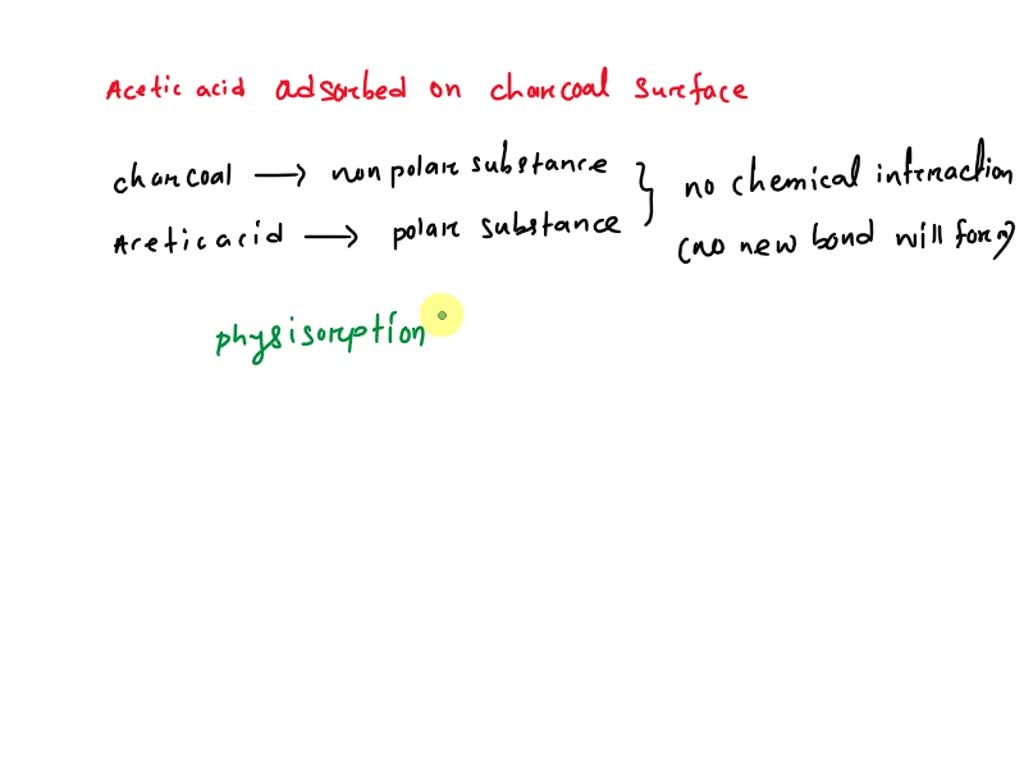 Acetic acid adsorbed on charcoal surface
charcoal → non polar substance } no chemical interaction
Acetic acid → polar substance (no new bond will form)
physisorption